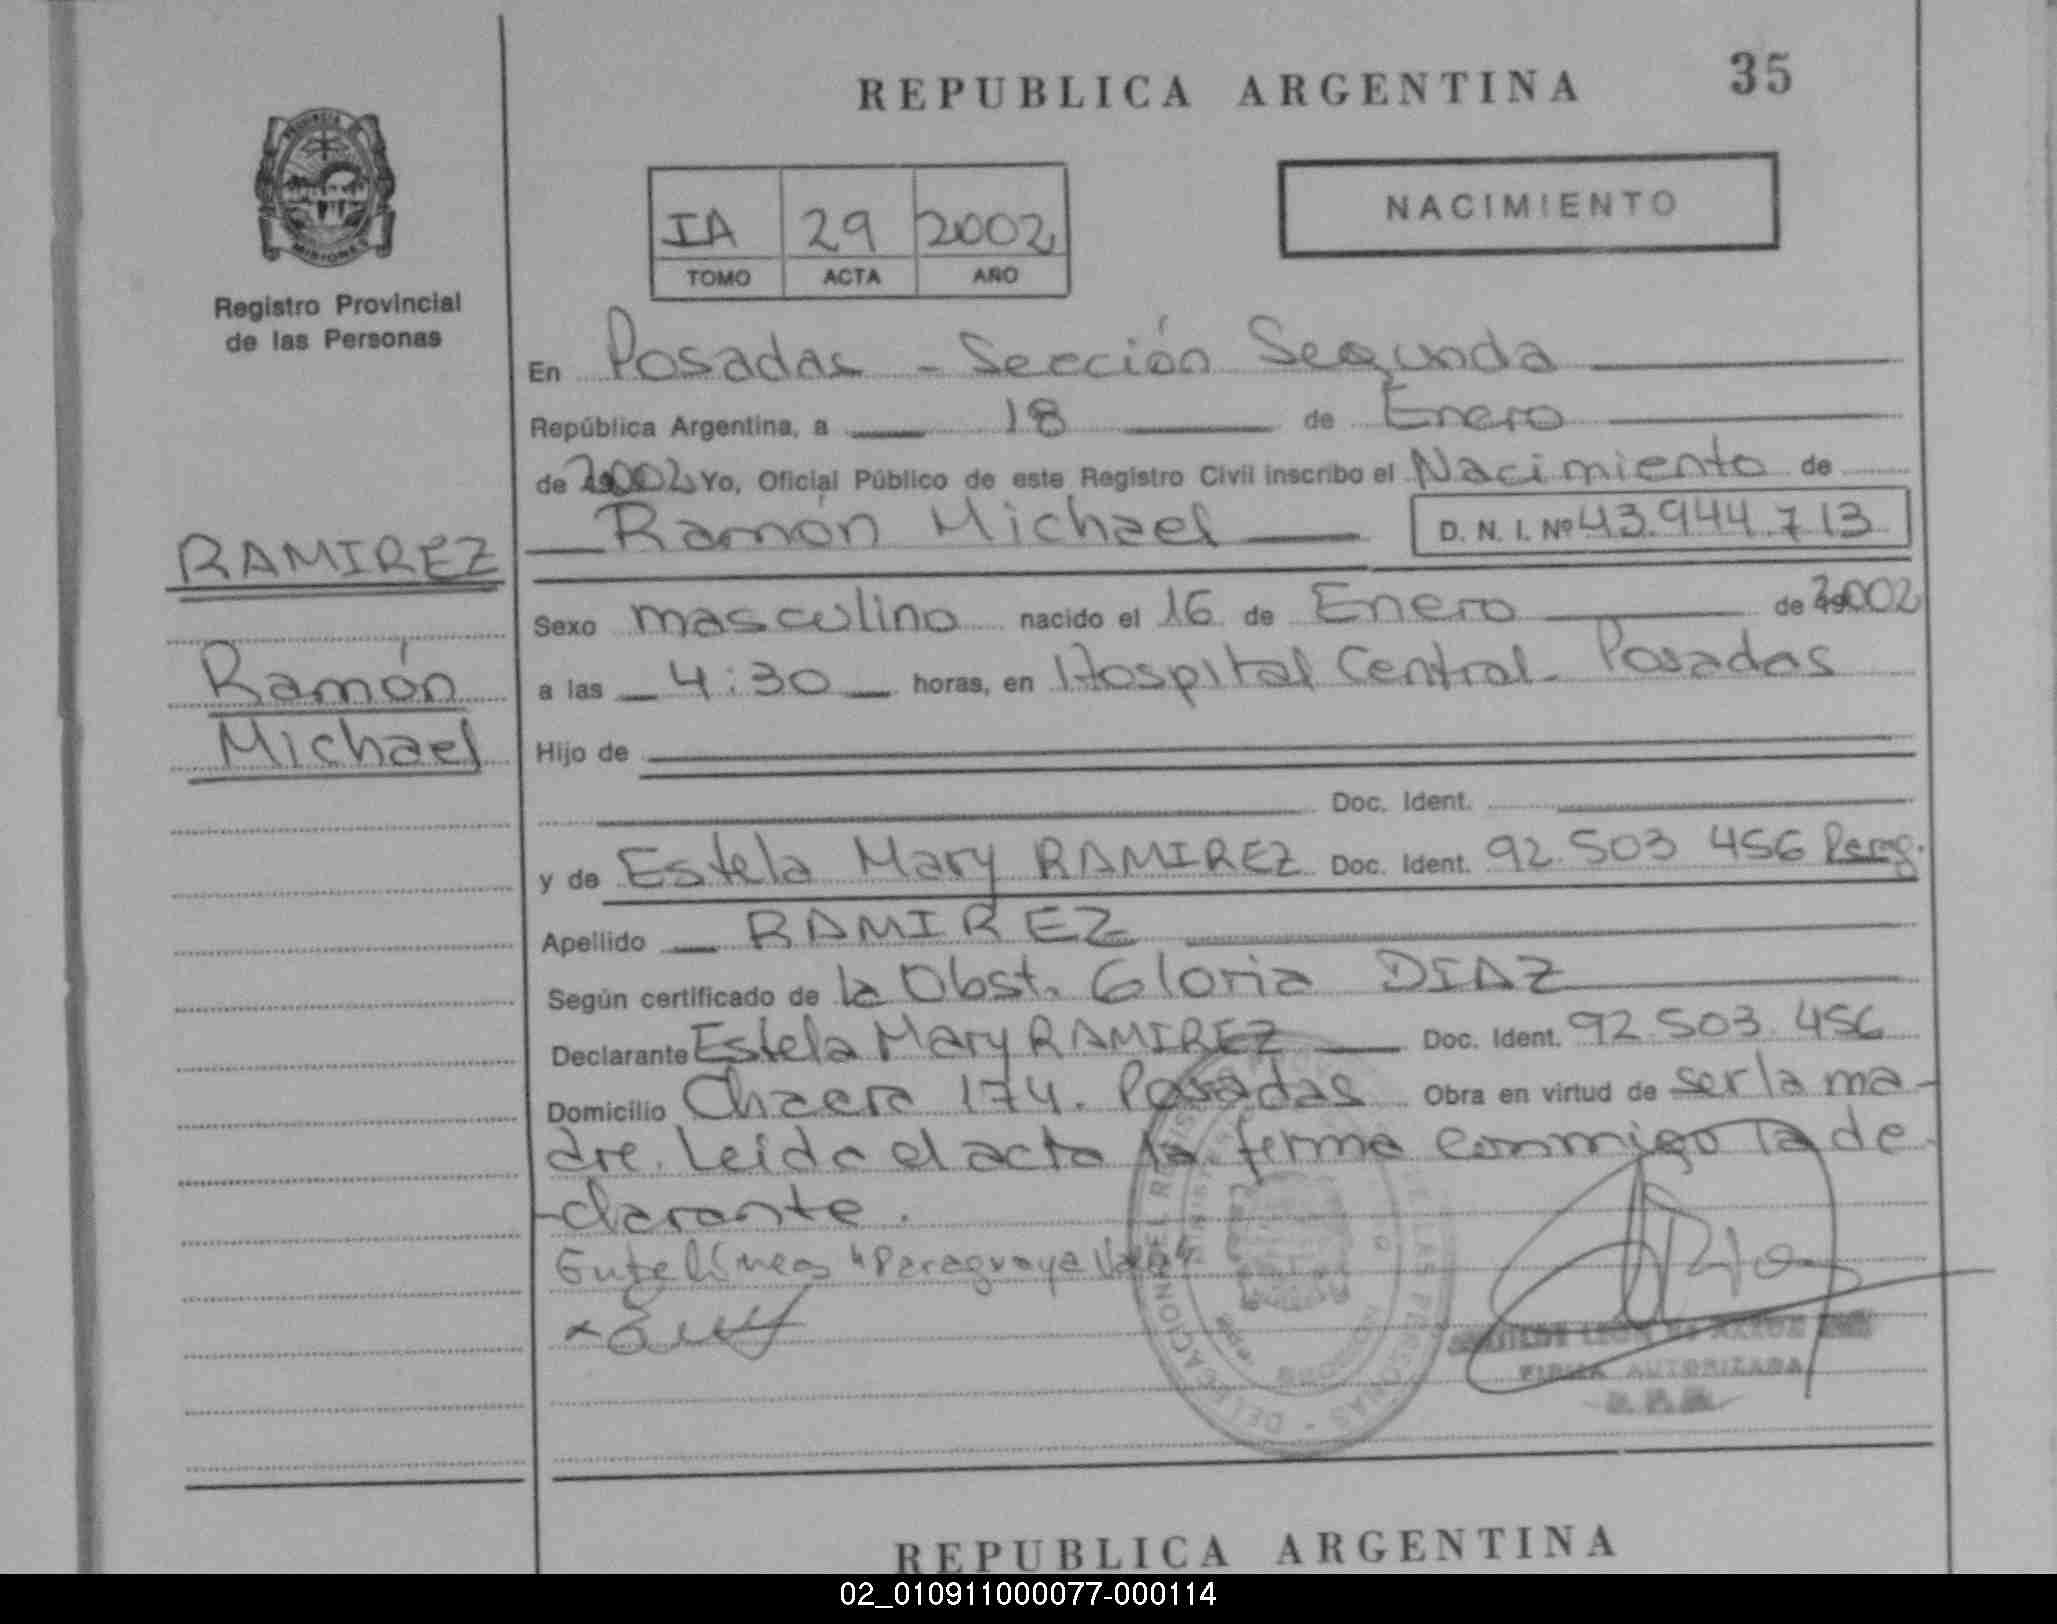 REPUBLICA ARGENTINA 35
IA 29 2002
TOMO ACTA AÑO
NACIMIENTO
Registro Provincial
de las Personas
En Posadas - Sección Segunda
República Argentina, a 18 de Enero
de 2002 Yo, Oficial Público de este Registro Civil inscribo el Nacimiento de
Ramón Michael D. N. I. Nº 43.944.713
RAMIREZ
Ramón
Michael
Sexo masculino nacido el 16 de Enero de 2002
a las 4:30 horas, en Hospital Central Posadas
Hijo de
Doc. Ident.
y de Estela Mary RAMIREZ Doc. Ident. 92.503 456 Parag.
Apellido RAMIREZ
Según certificado de la Obst. Gloria DIAZ
Declarante Estela Mary RAMIREZ Doc. Ident. 92.503.456
Domicilio Chacra 174. Posadas Obra en virtud de ser la ma-
dre. Leida el acta la firma conmigo la de-
clarante.
Entre líneas "Paraguaya Vale"
FIRMA AUTORIZADA
REPUBLICA ARGENTINA
02_010911000077-000114